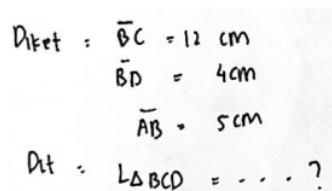 Diket : B̅C = 12 cm
B̅D = 4cm
A̅B = 5cm
Dit : L△BCD = . . . ?